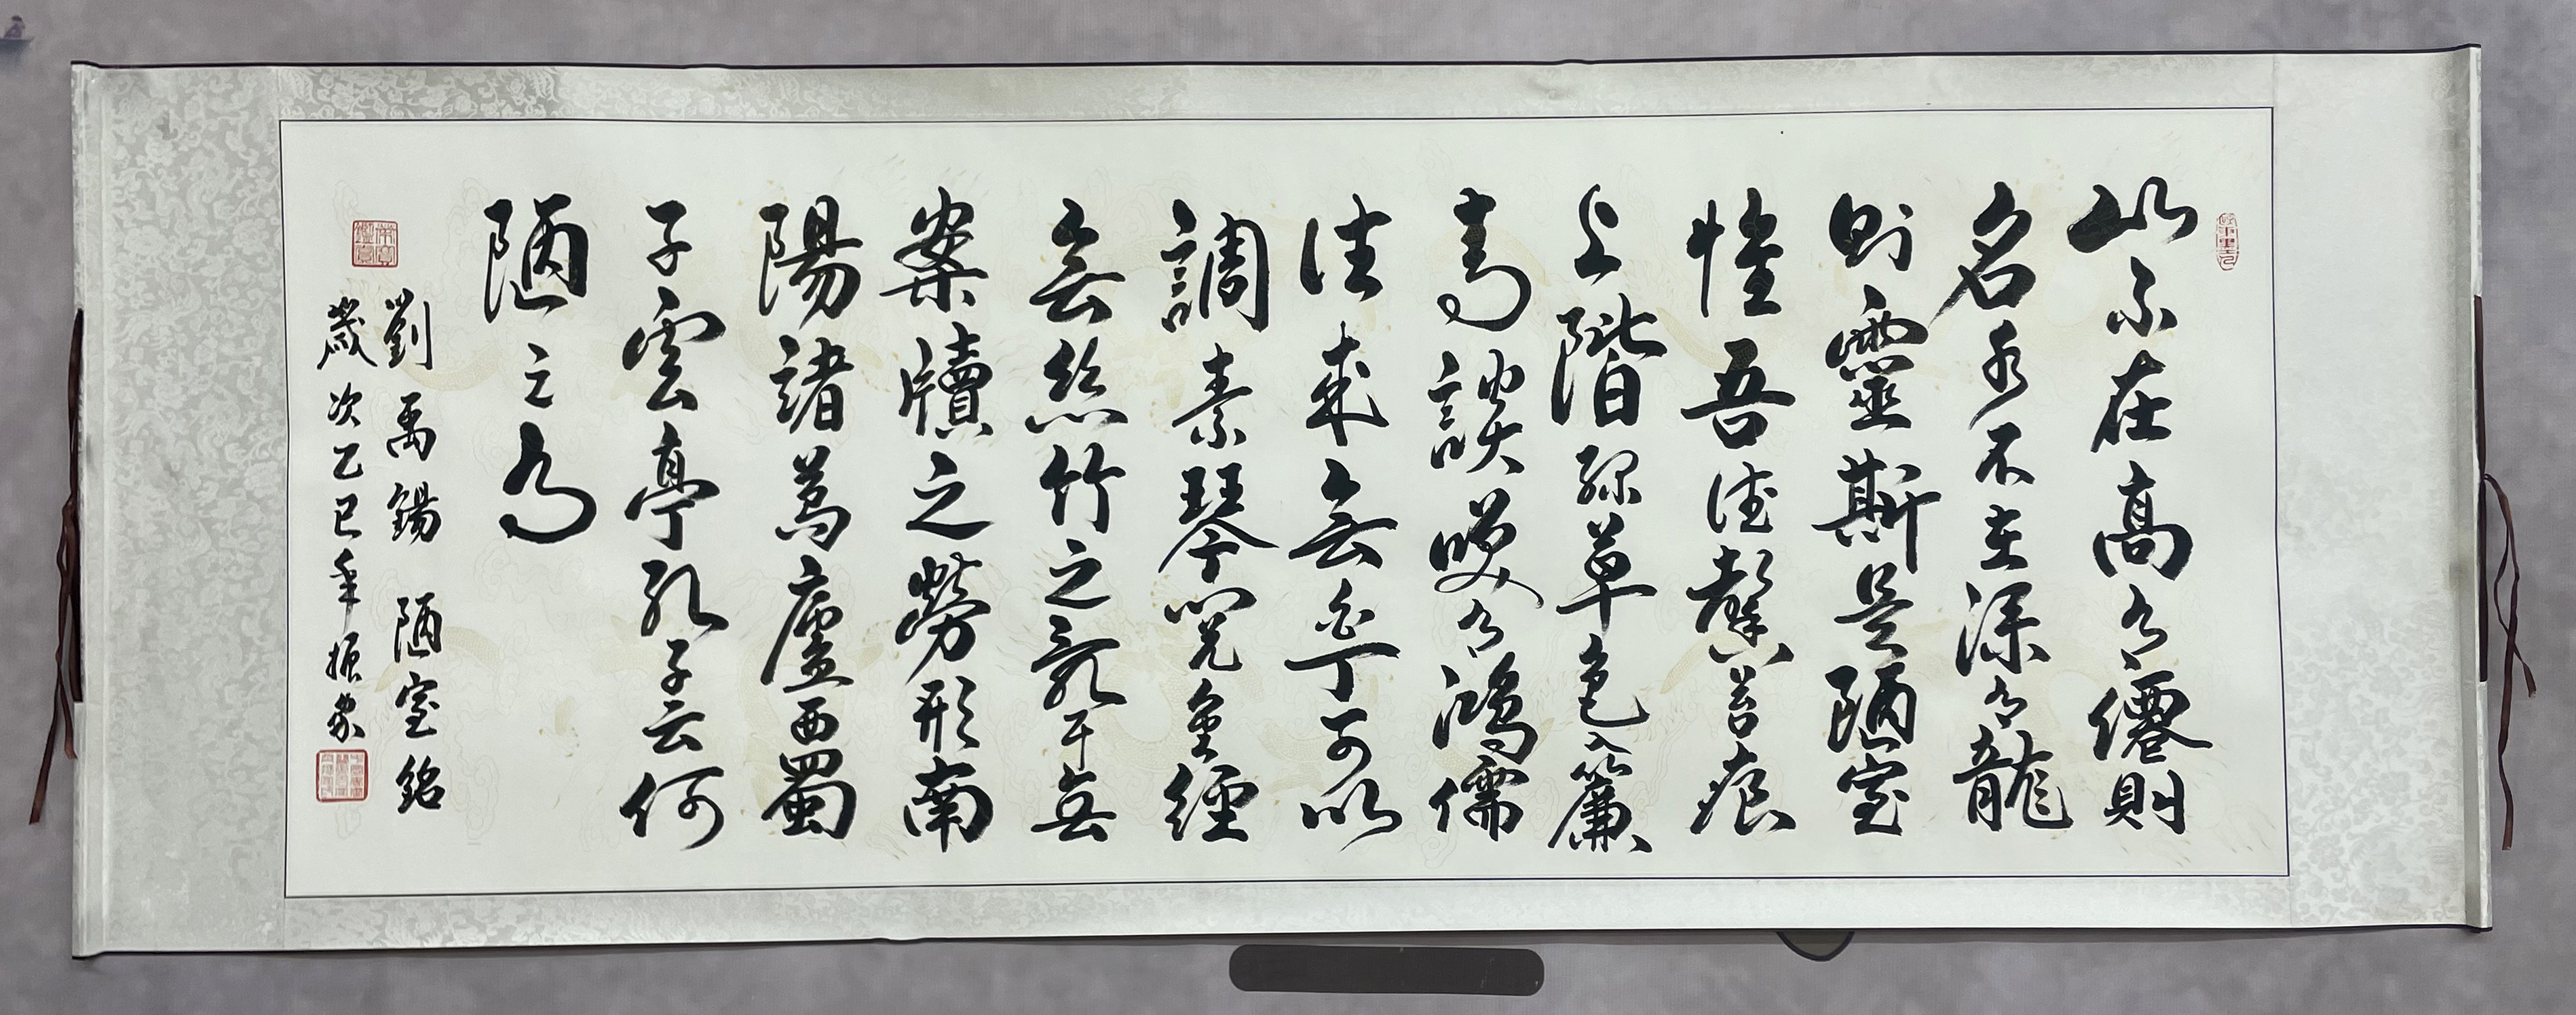 山不在高有僊則
名水不在深有龍
則靈斯是陋室
惟吾德馨苔痕
上階綠草色入簾
青談笑有鴻儒
往來無白丁可以
調素琴閱金經
無絲竹之亂耳無
案牘之勞形南
陽諸葛廬西蜀
子雲亭孔子云何
陋之有
劉禹錫 陋室銘
歲次乙巳年振